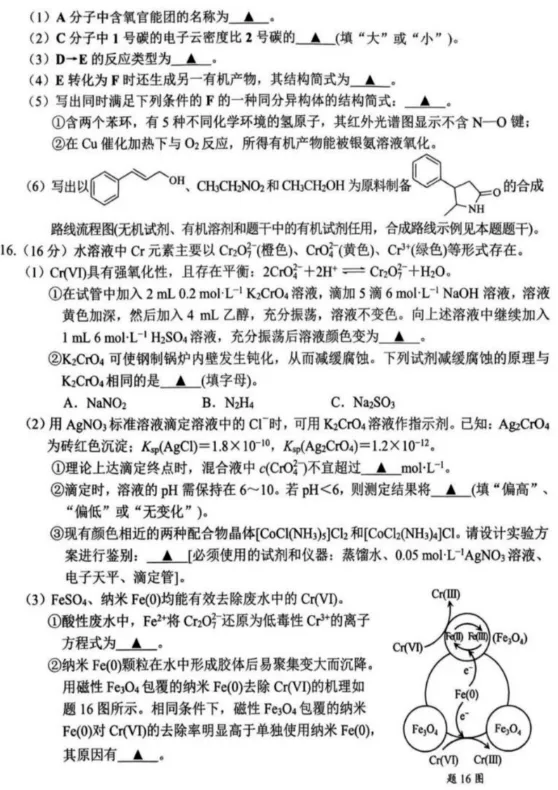 （1）A 分子中含氧官能团的名称为 ▲ 。
（2）C 分子中 1 号碳的电子云密度比 2 号碳的 ▲ (填“大”或“小”)。
（3）D→E 的反应类型为 ▲ 。
（4）E 转化为 F 时还生成另一有机产物，其结构简式为 ▲ 。
（5）写出同时满足下列条件的 F 的一种同分异构体的结构简式： ▲ 。
①含两个苯环，有 5 种不同化学环境的氢原子，其红外光谱图显示不含 N—O 键；
②在 Cu 催化加热下与 O₂ 反应，所得有机产物能被银氨溶液氧化。
（6）写出以 OH、CH₃CH₂NO₂ 和 CH₃CH₂OH 为原料制备 O NH 的合成
路线流程图(无机试剂、有机溶剂和题干中的有机试剂任用，合成路线示例见本题题干)。
16.（16 分）水溶液中 Cr 元素主要以 Cr₂O₇²⁻(橙色)、CrO₄²⁻(黄色)、Cr³⁺(绿色)等形式存在。
（1）Cr(VI)具有强氧化性，且存在平衡：2CrO₄²⁻+2H⁺ ⇌ Cr₂O₇²⁻+H₂O。
①在试管中加入 2 mL 0.2 mol·L⁻¹ K₂CrO₄ 溶液，滴加 5 滴 6 mol·L⁻¹ NaOH 溶液，溶液
黄色加深，然后加入 4 mL 乙醇，充分振荡，溶液不变色。向上述溶液中继续加入
1 mL 6 mol·L⁻¹ H₂SO₄ 溶液，充分振荡后溶液颜色变为 ▲ 。
②K₂CrO₄ 可使钢制锅炉内壁发生钝化，从而减缓腐蚀。下列试剂减缓腐蚀的原理与
K₂CrO₄ 相同的是 ▲ (填字母)。
A．NaNO₂ B．N₂H₄ C．Na₂SO₃
（2）用 AgNO₃ 标准溶液滴定溶液中的 Cl⁻ 时，可用 K₂CrO₄ 溶液作指示剂。已知：Ag₂CrO₄
为砖红色沉淀；Ksp(AgCl)=1.8×10⁻¹⁰，Ksp(Ag₂CrO₄)=1.2×10⁻¹²。
①理论上达滴定终点时，混合液中 c(CrO₄²⁻)不宜超过 ▲ mol·L⁻¹。
②滴定时，溶液的 pH 需保持在 6～10。若 pH＜6，则测定结果将 ▲ (填“偏高”、
“偏低”或“无变化”)。
③现有颜色相近的两种配合物晶体[CoCl(NH₃)₅]Cl₂ 和[CoCl₂(NH₃)₄]Cl。请设计实验方
案进行鉴别： ▲ [必须使用的试剂和仪器：蒸馏水、0.05 mol·L⁻¹AgNO₃ 溶液、
电子天平、滴定管]。
（3）FeSO₄、纳米 Fe(0)均能有效去除废水中的 Cr(VI)。
①酸性废水中，Fe²⁺将 Cr₂O₇²⁻还原为低毒性 Cr³⁺的离子
方程式为 ▲ 。
②纳米 Fe(0)颗粒在水中形成胶体后易聚集变大而沉降。
用磁性 Fe₃O₄ 包覆的纳米 Fe(0)去除 Cr(VI)的机理如
题 16 图所示。相同条件下，磁性 Fe₃O₄ 包覆的纳米
Fe(0)对 Cr(VI)的去除率明显高于单独使用纳米 Fe(0)，
其原因有 ▲ 。
Cr(III)
Fe(II) Fe(III) (Fe₃O₄)
Cr(VI)
e⁻
Fe(0)
e⁻
Fe₃O₄ Fe₃O₄
Cr(VI) Cr(III)
题 16 图